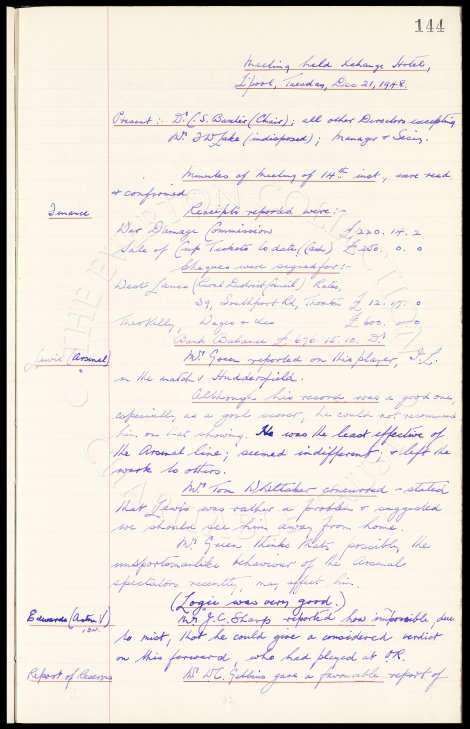 144
Meeting held Exchange Hotel,
L'pool, Tuesday, Dec 21, 1948.
Present:- Dr. C.S. Baxter (Chair); all other Directors excepting
Mr. (indisposed); Manager & Secy.
Minutes of Meeting of 14th inst, were read
& confirmed.
Finance Receipts reported were:-
War Damage Commission £ 220. 14. 2
Sale of Cup Tickets to date (Cash) £ 250. 0. 0
Cheques were signed for:-
West Lancs (Rural District Council) Rates,
39, Southport Rd, Thornton £ 12. 17. 0
Theo Kelly, Wages & £ 600. 0. 0
Bank Balance £ 676. 15. 10. Dr.
Lewis (Arsenal) Mr. Green reported on this player, I.L.
in the match v Huddersfield.
Although his record was a good one,
especially as a goal scorer, he could not recommend
him on that showing. He was the least effective of
the Arsenal line; seemed indifferent; & left the
work to others.
Mr. Tom Whittaker concurred - stated
that Lewis was rather a problem & suggested
we should see him away from home.
Mr. Green thinks that, possibly the
unsportsmanlike behaviour of the Arsenal
spectators recently, may affect him.
(Logie was very good.)
Edwards (Aston V) Mr. J.C. Sharp reported how impossible, due
to mist, that he could give a considered verdict
on this forward, who had played at OR.
Report of Reserves Mr. W.C. Gibbins gave a favourable report of
THE EVERTON COLLECTION